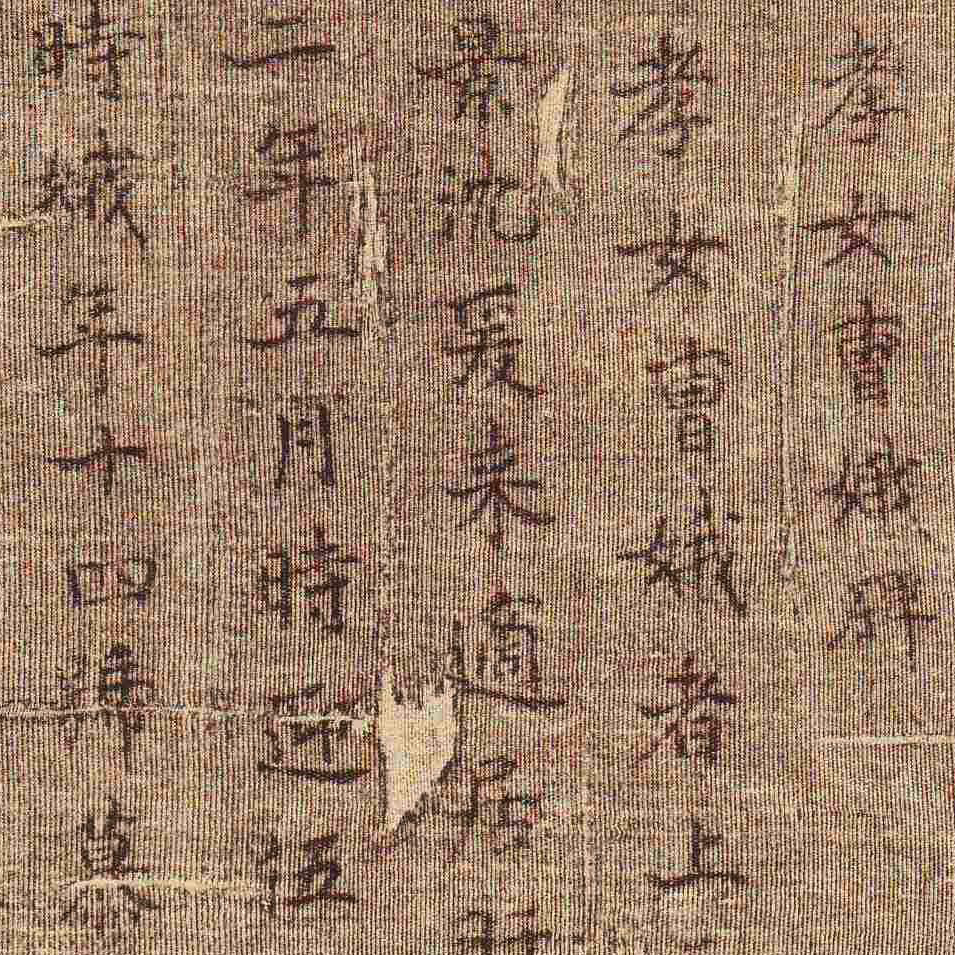 孝女曹娥碑
孝女曹娥者上
景沉爰来適居
二年五月時迎伍
時娥年十四號慕